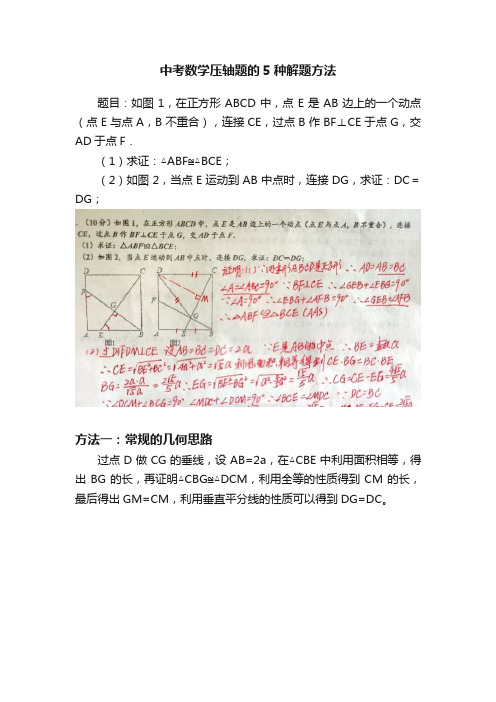 中考数学压轴题的5种解题方法
题目：如图1，在正方形ABCD中，点E是AB边上的一个动点
（点E与点A，B不重合），连接CE，过点B作BF⊥CE于点G，交
AD于点F．
（1）求证：△ABF≌△BCE；
（2）如图2，当点E运动到AB中点时，连接DG，求证：DC＝
DG；
(10分)如图1，在正方形ABCD中，点E是AB边上的一个动点（点E与点A，B不重合），连接
CE，过点B作BF⊥CE于点G，交AD于点F．
(1) 求证：△ABF≌△BCE；
(2) 如图2，当点E运动到AB中点时，连接DG，求证：DC=DG；
证明：(1)∵四边形ABCD是正方形 ∴AD=AB=BC
∠A=∠ABC=90° ∵BF⊥CE ∴∠GEB+∠EBG=90°
∵∠A=90° ∴∠EBG+∠AFB=90° ∴∠GEB=∠AFB
∴△ABF≌△BCE (AAS)
D C D C
M
F F
G G
A E B A E B
图1 图2
(2)过D作DM⊥CE 设AB=BC=DC=2a ∵E是AB的中点 ∴BE=
∴CE=√BE²+BC²=√4a²+a²=√5a 利用面积相等得 CE·BG=BC·BE
BG=2a·a/√5a=2√5/5a ∴EG=√BE²-BG²= =√5/5a ∴CG=CE-EG=4√5/5a
∵∠DCM+∠BCG=90° ∠MDC+∠DCM=90° ∴∠BCE=∠MDC ∵DC=BC
方法一：常规的几何思路
过点D做CG的垂线，设AB=2a，在△CBE中利用面积相等，得
出BG的长，再证明△CBG≌△DCM，利用全等的性质得到CM的长，
最后得出GM=CM，利用垂直平分线的性质可以得到DG=DC。